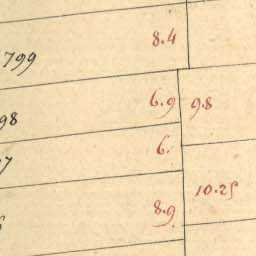 8.4
799
6.9 9.8
98
6.
7
10.25
8.9